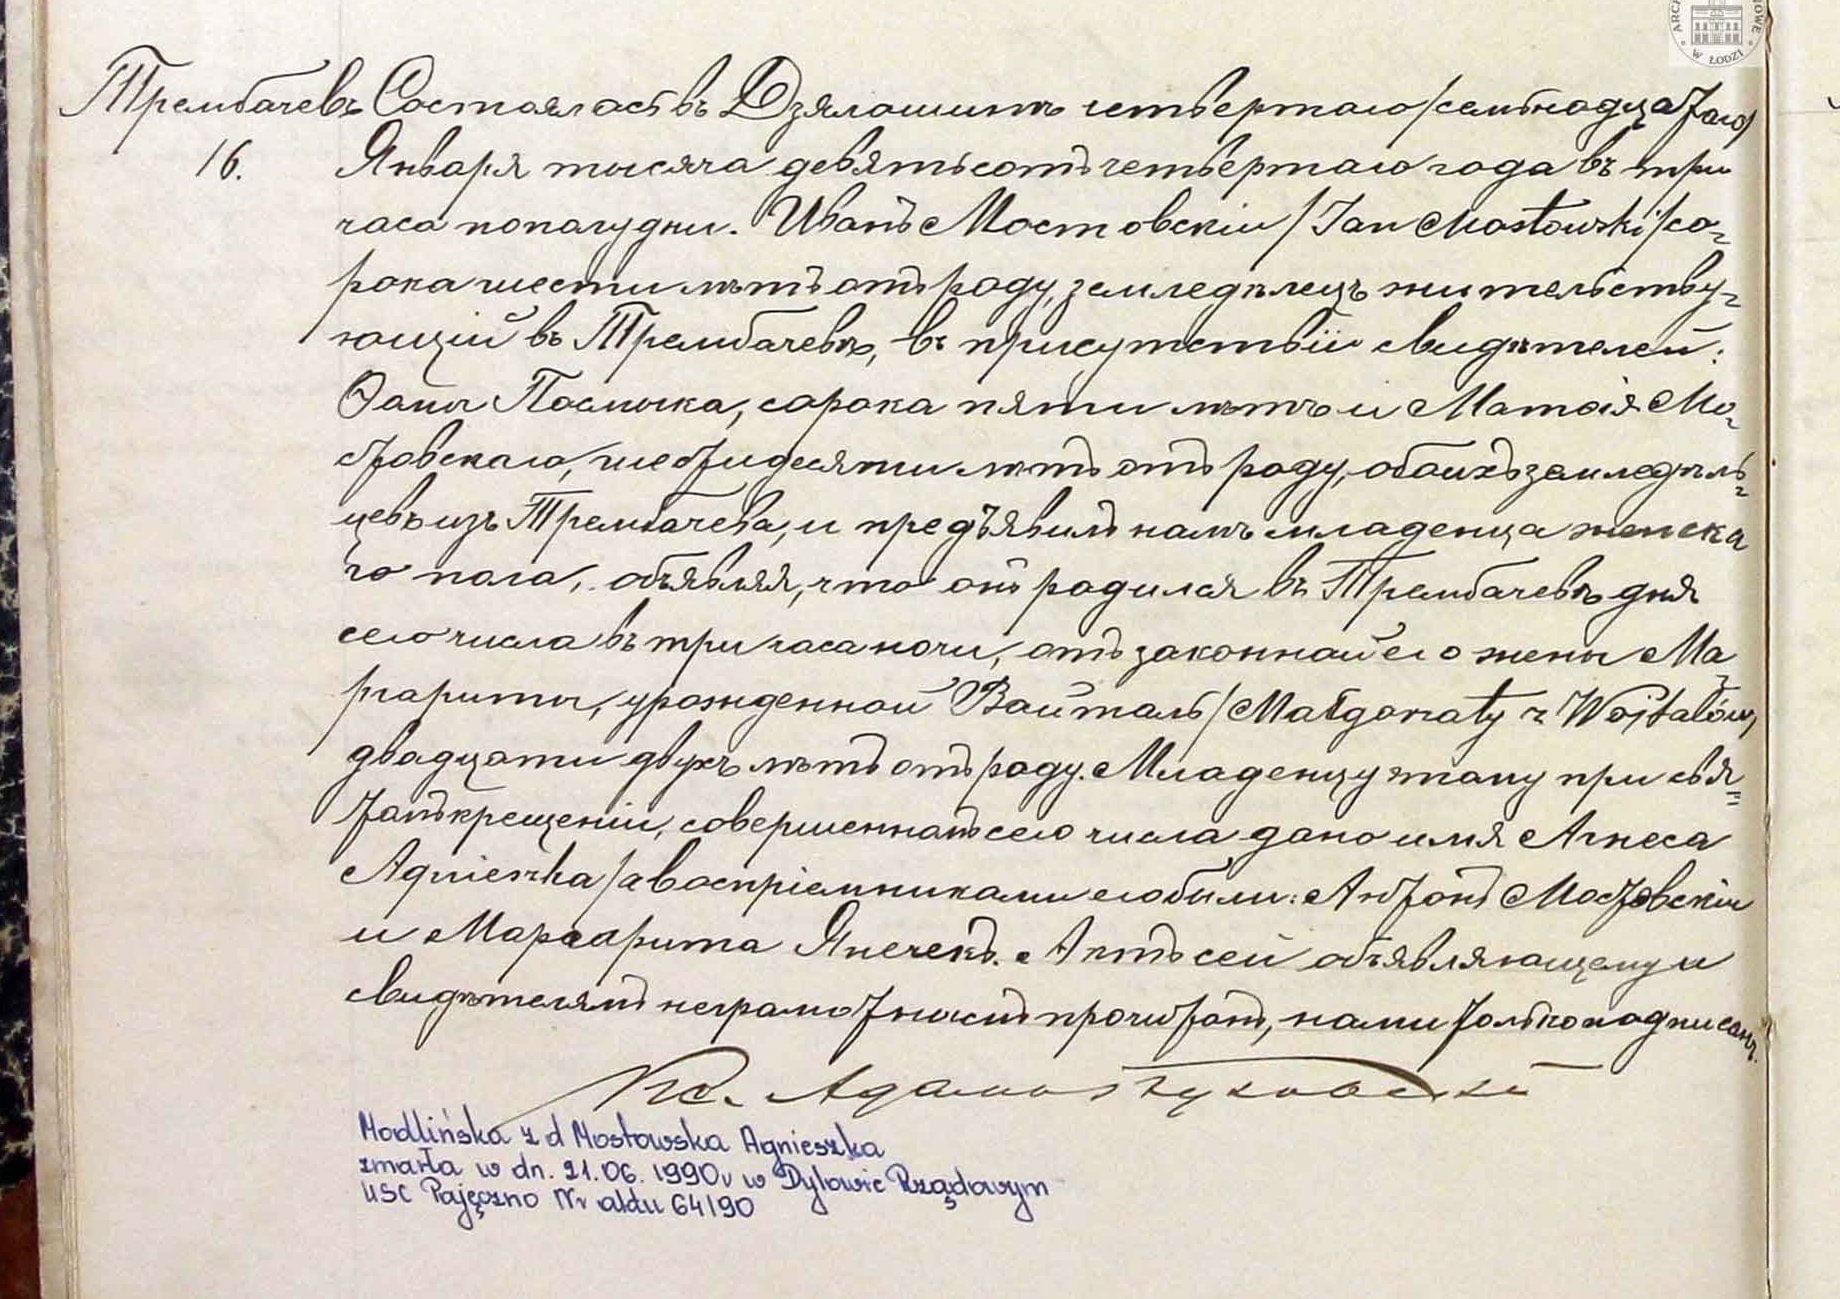 Трембачевъ Состоялось въ Дзялошинѣ четвертаго /семнадцатаго/
16. Января тысяча девятьсотъ четвертаго года въ три
часа пополудни. Иванъ Мостовскій /Jan Mostowski/ со-
рока шести лѣтъ отъ роду, земледѣлецъ жительству-
ющій въ Трембачевѣ, въ присутствіи свидѣтелей:
Ѳомы сорока пяти лѣтъ и Матѳія Мо-
стовскаго, шестидесяти лѣтъ отъ роду, обоихъ земледѣль-
цевъ изъ Трембачева, и предъявилъ намъ младенца женска
го пола, объявляя, что онъ родился въ Трембачевѣ дня
сего числа въ три часа ночи, отъ законной его жены Ма-
ргариты, урожденной Войталь /Małgorzaty z Wojtalów/
двадцати двухъ лѣтъ отъ роду. Младенцу этому при свя-
томъ крещеніи, совершенномъ сего числа дано имя Агнеса
Agnieszka/ а воспріемниками его были: Антонъ Мостовскій
и Маргарита Янечекъ. Актъ сей объявляющему и
свидѣтелямъ неграмотнымъ прочитанъ, нами только подписанъ.
Кс. Адамъ
Modlińska z d Mostowska Agnieszka
zmarła w dn. 21.06.1990r w Dylowie Rządowym
USC Pajęczno Nr aktu 64/90
ARCH
OWE
W ŁODZI